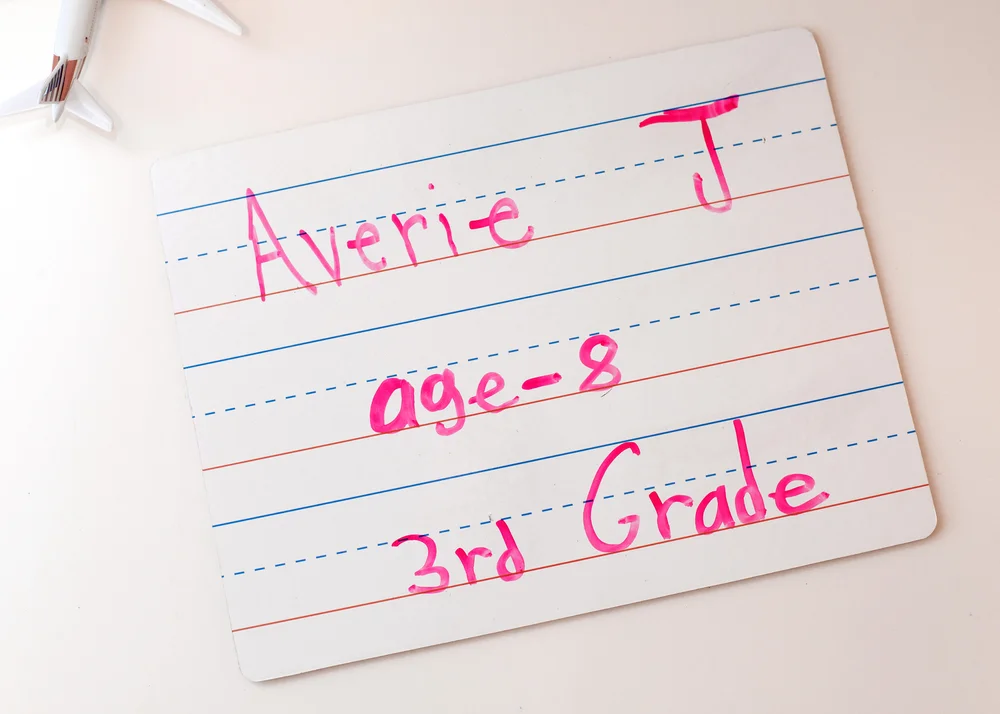 Averie J
age-8
3rd Grade